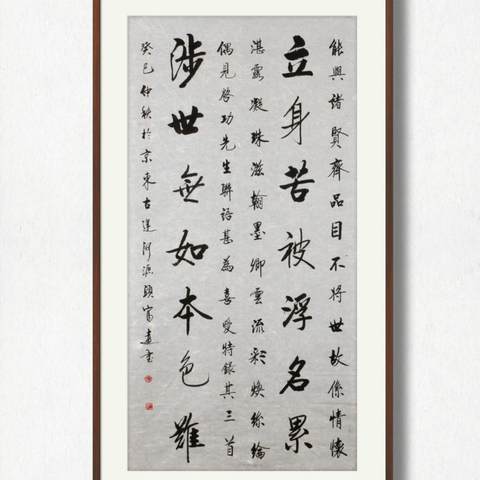 能與諸賢齊品目不將世故係情懷
立身苦被浮名累
湛露凝珠滋翰墨卿雲流彩煥絲綸
偶見啓功先生聯語甚為喜愛特錄其三首
涉世無如本色難
癸巳仲秋於京東古運河源頭